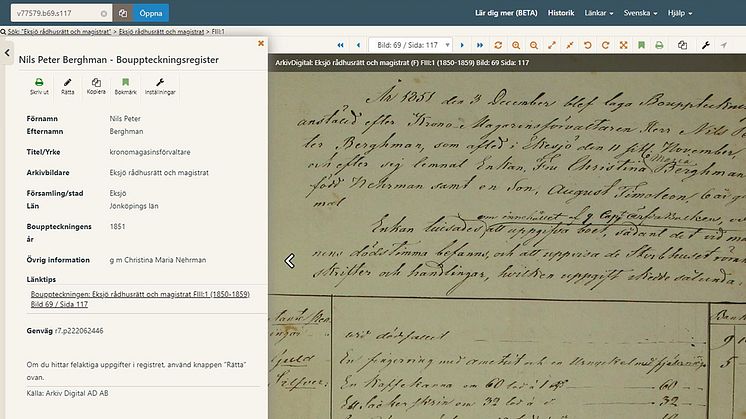 v77579.b69.s117
Öppna
Lär dig mer (BETA)
Historik
Länkar
Svenska
Hjälp
Sök: "Eksjö rådhusrätt och magistrat" > Eksjö rådhusrätt och magistrat > FIII:1
Nils Peter Berghman - Bouppteckningsregister
Skriv ut
Rätta
Kopiera
Bokmärk
Inställningar
Förnamn Nils Peter
Efternamn Berghman
Titel/Yrke kronomagasinsförvaltare
Arkivbildare Eksjö rådhusrätt och magistrat
Församling/stad Eksjö
Län Jönköpings län
Bouppteckningens 1851
år
Övrig information g m Christina Maria Nehrman
Länktips
Bouppteckningen: Eksjö rådhusrätt och magistrat FIII:1 (1850-1859)
Bild 69 / Sida 117
Genväg r7.p222062446
Om du hittar felaktiga uppgifter i registret, använd knappen "Rätta"
ovan.
Källa: Arkiv Digital AD AB
Bild: 69 / Sida: 117
ArkivDigital: Eksjö rådhusrätt och magistrat (F) FIII:1 (1850-1859) Bild: 69 Sida: 117
År 1851 den 3 December blef laga
anstäld efter Krono Magasinsförvaltaren Herr Nils
ter Berghman, som afled i Eksjö den 11 November,
och efter sig lemnat Enkan, Fru Christina Maria Berghman
född Nehrman samt en Son, August Timoleon, 6 år
mal
Enkan att uppgifva boet, sådant det vid
nens dödstimma befanns, och att uppvisa de
skrifter och handlingar, hvilken uppgift skedde sålunda:
Guld
Silfver:
En Kaffekanna om 60 lod 60
Ett Sockerskrin om 32 lod 32